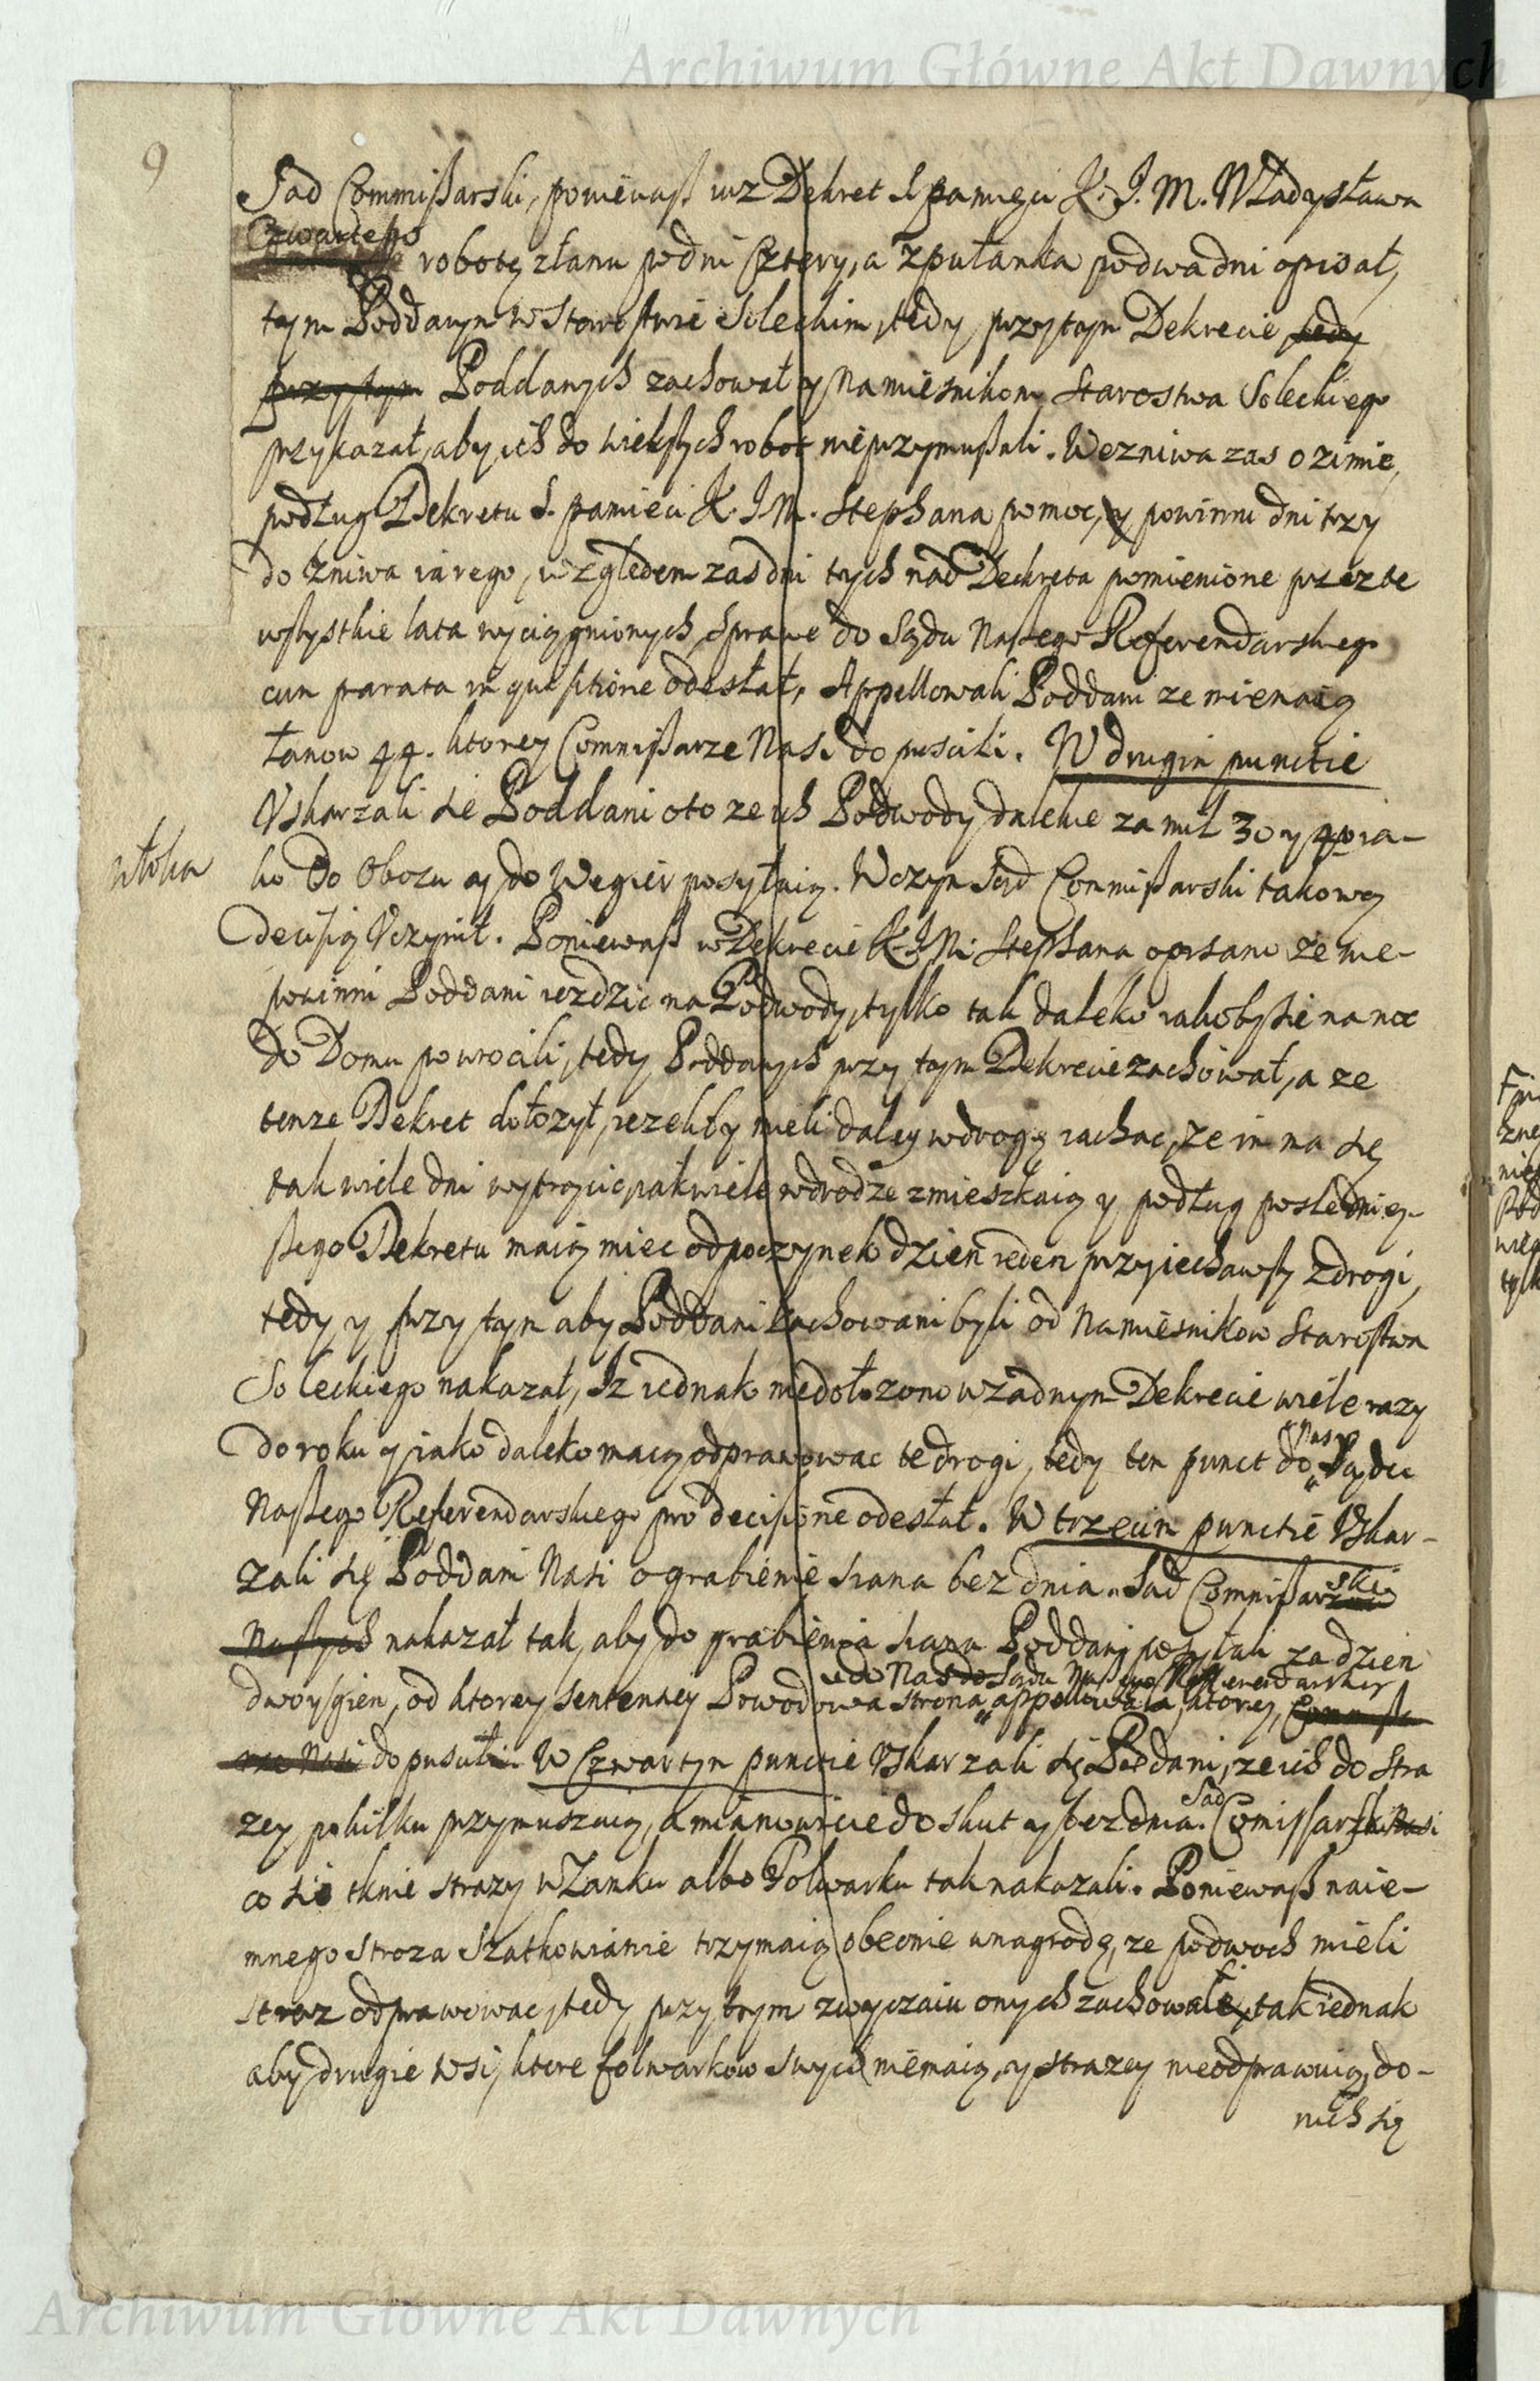 Archiwum Główne Akt Dawnych
9
Sąd Commißarski, ponieważ iuz Dekret S. pamięci K. J. M. Władysława
Czwartego
roboty z łanu po dni cztery, a z pułanka po dwa dni opisał,
tym Poddanym w Starostwie Soleckim, tedy przy tym Dekrecie tedy
przy tym Poddanych zachował y Namiesnikom Starostwa Soleckiego
przykazał, aby ich do wiekszych robot nieprzymußali. We zniwa zas ozimie,
podług Dekretu S. pamieci K. J. M. Stephana pomoc, y powinni dni trzy
do zniwa iarego, względem zas dni tych nad Dekreta pomienione przez te
wszystkie lata wyciągnionych, Sprawe do Sądu Naßego Referendarskiego
cum parata inquisitione odesłał, Appellowali Poddani ze nie maią
łanow 44. ktorey Commißarze Nasi dopuscili. W drugim punctie
Uskarzali sie Poddani oto ze ich Podwody dalekie za mil 30 y 40 ia-
ko do Obozu y do Wegier posyłaią. W czym Sąd Commißarski takową
decisią Uczynił. Ponieważ w Dekrecie K. J. M. Stephana opisano ze nie-
powinni Poddani iezdzic na Podwody, tylko tak daleko iakoby sie na noc
do Domu powrocili, tedy Poddanych przy tym Dekrecie zachował, a ze
tenze Dekret dołozył, iezeliby mieli daley w drogę iachac, ze im ma się
tak wiele dni wytrącic, iak wiele w drodze zmieszkaią y podług posledniey-
ßego Dekretu maią miec odpoczynek dzien ieden przyiechawszy z drogi,
tedy y przy tym aby Poddani zachowani byli od Namiesnikow Starostwa
Soleckiego nakazał, Iz iednak niedołozono w zadnym Dekrecie wiele razy
do roku y iako daleko maią odprawowac te drogi, tedy ten punct do Sądu
Naßego Referendarskiego pro decisione odesłał. W trzecim punctie Uskar-
zali się Poddani Nasi o grabienie siana bez dnia. Sąd Commißarski
Naßych nakazał tak, aby do grabienia siana Poddani posyłali za dzien
do Nas do Sądu Naßego Refferendarskie
dwoygien, od ktorey sententiey Powodowa strona appellowała, ktorey, Commißa
rze Nasi dopuscili. W Czwartym punctie Uskarzali się Poddani, ze ich do Stra
zey po kilku przymuszaią, a mianowicie do skut y bez dnia. Sąd Comissarski Nasi
co sie tknie strazy w Zamku albo Folwarku tak nakazali. Ponieważ naie-
mnego stroza Szatkowianie trzymaią obecnie w nagrodę, ze po dwoch mieli
straz odprawowac, tedy przy tym zwyczaiu onych zachował, tak iednak
aby drugie wsi, ktore folwarkow swych niemaią, y strazey nieodprawuią, do-
nich się
Archiwum Główne Akt Dawnych